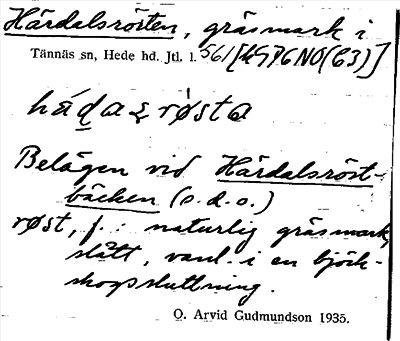 Härdalsrösten, gräsmark i
Tännäs sn, Hede hd. Jtl. l. 561 [kGPGNO(C3)]
Belägen vid Härdalsröst-
bäcken (s.d.o.)
røst, f.: naturlig gräsmark,
slått, vanl. i en björk-
skogssluttning.
O. Arvid Gudmundson 1935.